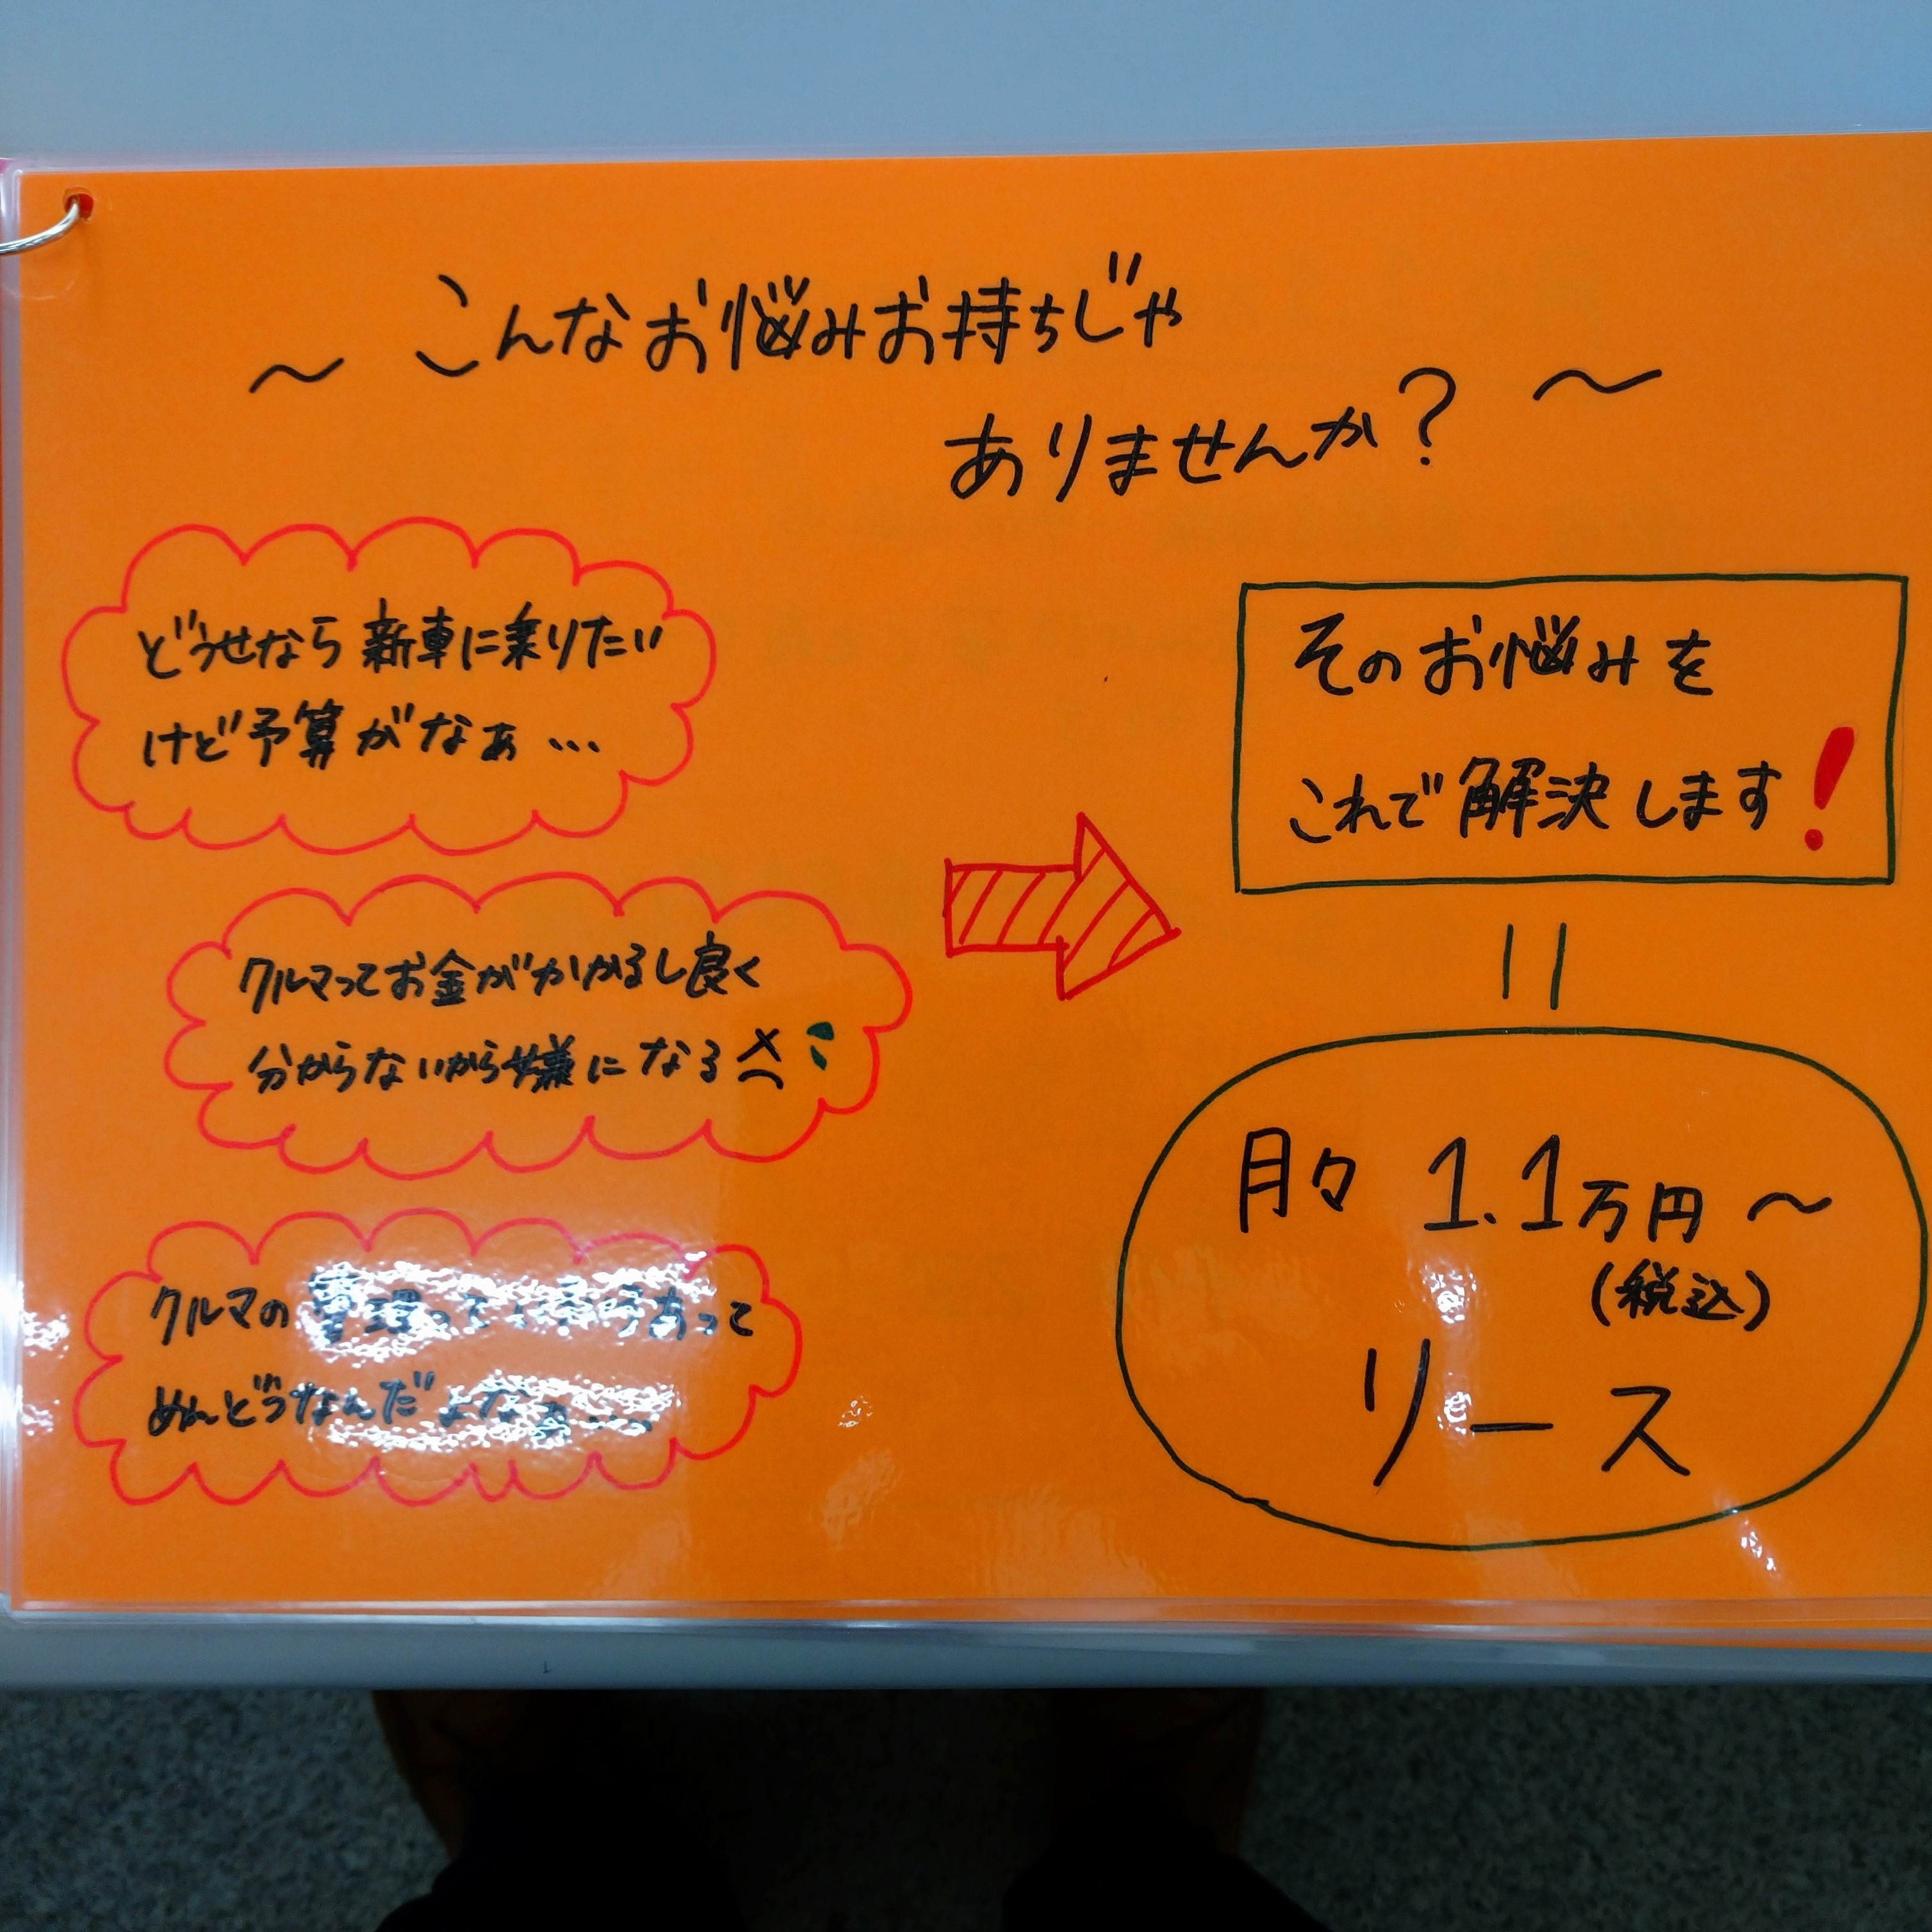 ～ こんなお悩みお持ちじゃ
ありませんか? ～
どうせなら新車に乗りたい
けど予算がなぁ…
クルマってお金がかかるし良く
分からないから嫌になる
クルマの管理って
めんどうなんだよなぁ…
そのお悩みを
これで解決します!
=
月々 1.1万円～
(税込)
リース